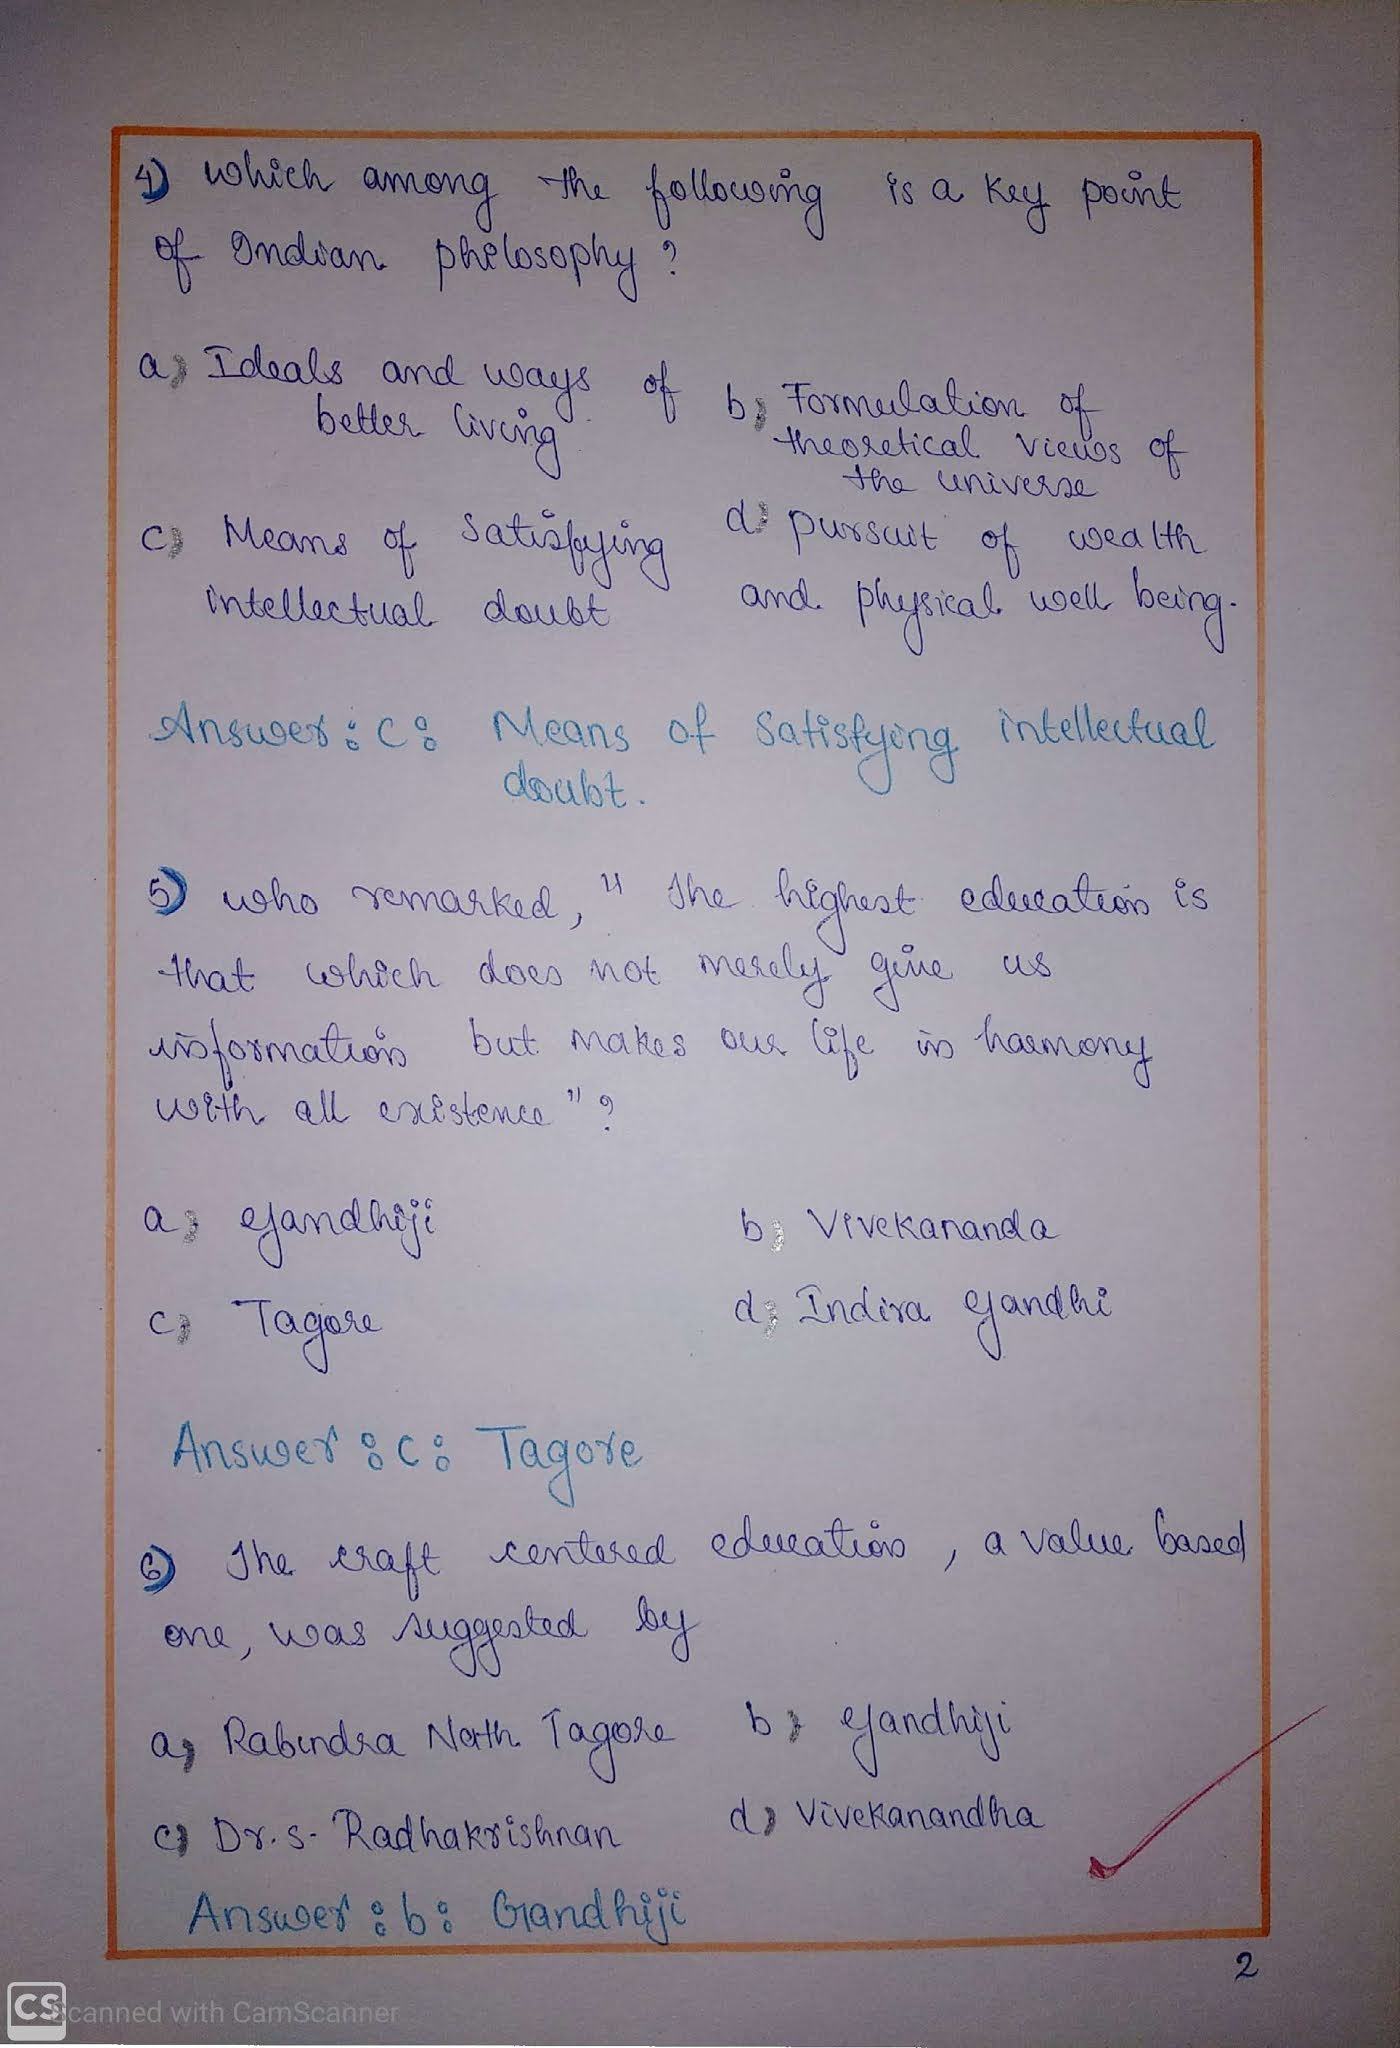 4) which among the following is a key point
of Indian philosophy ?
a) Ideals and ways of
better living.
b) Formulation of
theoretical views of
the universe
c) Means of Satisfying
intellectual doubt
d) pursuit of wealth
and physical well being.
Answer : c : Means of Satisfying intellectual
doubt.
5) who remarked, " The highest education is
that which does not merely give us
information but makes our life in harmony
with all existence " ?
a) Gandhiji
b) Vivekananda
c) Tagore
d) Indira Gandhi
Answer : c : Tagore
6) The craft centered education , a value based
one, was suggested by
a) Rabindra Nath Tagore
b) Gandhiji
c) Dr. S. Radhakrishnan
d) Vivekanandha
Answer : b : Gandhiji
2
CS Scanned with CamScanner